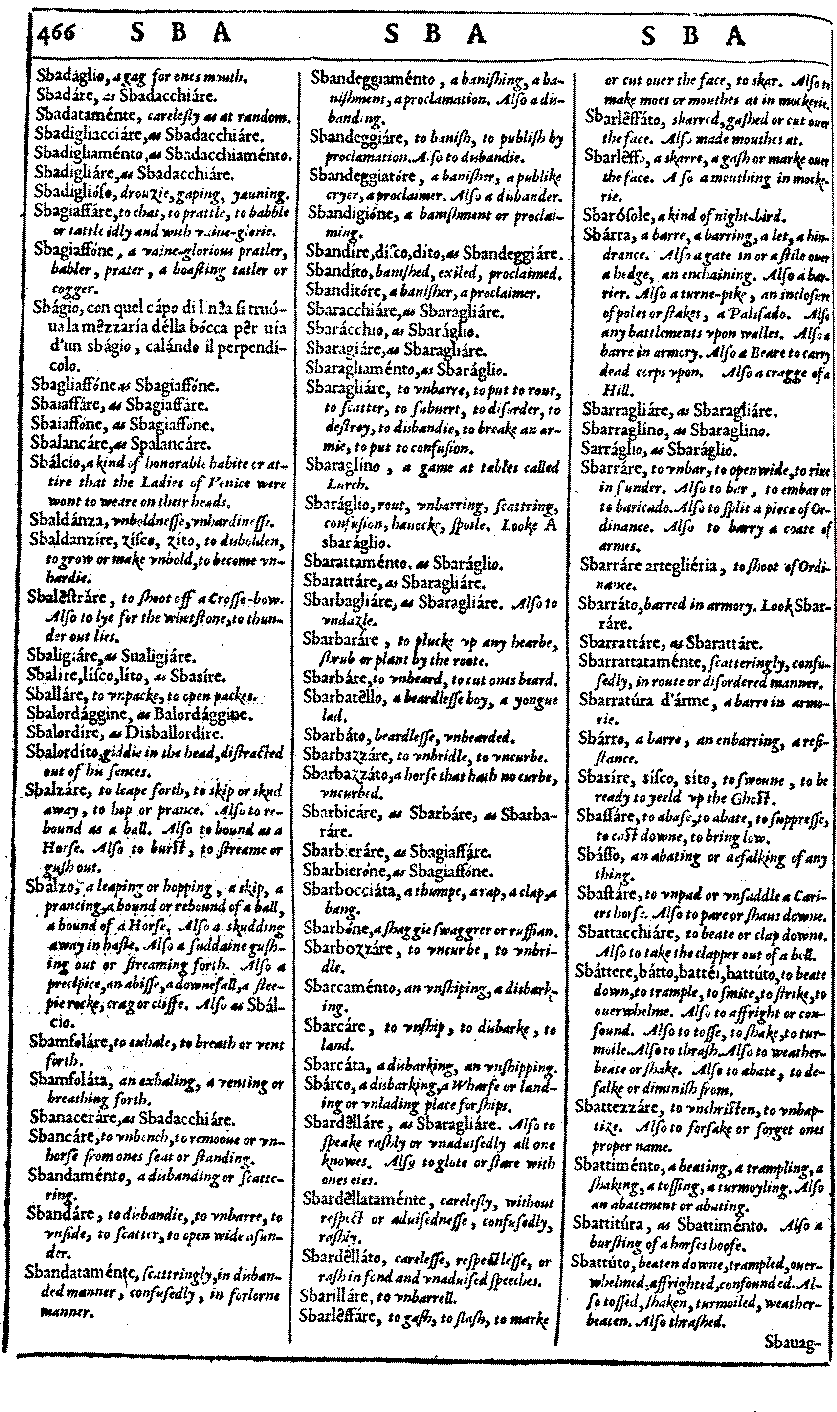 466 S B A S B A S B A
Sbadáglio, a gag for ones mouth.
Sbadáre, as Sbadacchiáre.
Sbadataménte, carelesly as at random.
Sbadigliacciáre, as Sbadacchiáre.
Sbadigliaménto, as Sbadacchiaménto.
Sbadigliáre, as Sbadacchiáre.
Sbadiglióso, drouzie, gaping, yauning.
Sbagiaffáre, to chat, to prattle, to babble
or tattle idly and with vaine-glorie.
Sbagiaffóne, a vaine-glorious pratler,
babler, prater, a boasting tatler or
cogger.
Sbágio, con quel cápo di línẽa si truó-
ua la mẽzzaría délla bócca pẽr uía
d'un sbágio, calándo il perpendí-
colo.
Sbagliaffóne, as Sbagiaffóne.
Sbaiaffáre, as Sbagiaffáre.
Sbaiaffóne, as Sbagiaffóne.
Sbalancáre, as Spalancáre.
Sbálcio, a kind of honorable habite or at-
tire that the Ladies of Venice were
wont to weare on their heads.
Sbaldánza, vnboldnesse, vnhardinesse.
Sbaldanzíre, zísco, zíto, to dubolden,
to grow or make vnbold, to become vn-
hardie.
Sbalẽstráre, to shoot off a Crosse-bow.
Also to lye for the whetstone, to thun-
der out lies.
Sbaligiáre, as Sualigiáre.
Sbalíre, lísco, líto, as Sbasíre.
Sballáre, to vnpacke, to open packes.
Sbalordággine, as Balordággine.
Sbalordíre, as Disballordíre.
Sbalordíto, giddie in the head, distracted
out of his sences.
Sbalzáre, to leape forth, to skip or skud
away, to hop or prance. Also to re-
bound as a ball. Also to bound as a
Horse. Also to burst, to streame or
gush out.
Sbálzo, a leaping or hopping, a skip, a
prancing, a bound or rebound of a ball,
a bound of a Horse. Also a skudding
away in haste. Also a suddaine gush-
ing out or streaming forth. Also a
precipice, an abisse, a downefall, a stee-
pie rocke, crag or cliffe. Also as Sbál-
cio.
Sbamfoláre, to exhale, to breath or vent
forth.
Sbamfoláta, an exhaling, a venting or
breathing forth.
Sbanaceráre, as Sbadacchiáre.
Sbancáre, to vnbench, to remooue or vn-
horse from ones seat or standing.
Sbandaménto, a disbanding or scatte-
ring.
Sbandáre, to disbandie, to vnbarre, to
vnside, to scatter, to open wide asun-
der.
Sbandataménte, scattringly, in disban-
ded manner, confusedly, in forlorne
manner.
Sbandeggiaménto, a banishing, a ba-
nishment, a proclamation. Also a dis-
banding.
Sbandeggiáre, to banish, to publish by
proclamation. Also to disbandie.
Sbandeggiatóre, a banisher, a publike
cryer, a proclaimer. Also a disbander.
Sbandigióne, a banishment or proclai-
ming.
Sbandíre, dísco, díto, as Sbandeggiáre.
Sbandíto, banished, exiled, proclaimed.
Sbanditóre, a banisher, a proclaimer.
Sbaracchiáre, as Sbaragliáre.
Sbarácchio, as Sbaráglio.
Sbaragiáre, as Sbaragliáre.
Sbaragliaménto, as Sbaráglio.
Sbaragliáre, to vnbarre, to put to rout,
to scatter, to subuert, to disorder, to
destroy, to disbandie, to breake an ar-
mie, to put to confusion.
Sbaraglíno, a game at tables called
Lurch.
Sbaráglio, rout, vnbarring, scattring,
confusion, hauocke, spoile. Looke A
sbaráglio.
Sbarattaménto, as Sbaráglio.
Sbarattáre, as Sbaragliáre.
Sbarbagliáre, as Sbaragliáre. Also to
vndazle.
Sbarbaráre, to plucke vp any hearbe,
shrub or plant by the roote.
Sbarbáre, to vnbeard, to cut ones beard.
Sbarbatẽllo, a beardlesse boy, a yongue
lad.
Sbarbáto, beardlesse, vnbearded.
Sbarbazzáre, to vnbridle, to vncurbe.
Sbarbazzáto, a horse that hath no curbe,
vncurbed.
Sbarbicáre, as Sbarbáre, as Sbarba-
ráre.
Sbarbieráre, as Sbagiaffáre.
Sbarbieróne, as Sbagiaffóne.
Sbarbocciáta, a thumpe, a rap, a clap, a
bang.
Sbarbóne, a shaggie swaggrer or ruffian.
Sbarbozzáre, to vncurbe, to vnbri-
dle.
Sbarcaménto, an vnshiping, a disbark-
ing.
Sbarcáre, to vnship, to disbarke, to
land.
Sbarcáta, a disbarking, an vnshipping.
Sbárco, a disbarking, a Wharfe or land-
ing or vnlading place for ships.
Sbardẽlláre, as Sbaragliáre. Also to
speake rashly or vnaduisedly all one
knowes. Also to glote or stare with
ones eies.
Sbardẽllataménte, carelesly, without
respect or aduisednesse, confusedly,
rashly.
Sbardẽlláto, carelesse, respectlesse, or
rash in fond and vnaduised speeches.
Sbarilláre, to vnbarrell.
Sbarlẽffáre, to gash, to slash, to marke
or cut ouer the face, to skar. Also to
make moes or mouthes at in mockerie.
Sbarlẽffáto, skarred, gashed or cut ouer
the face. Also made mouthes at.
Sbarlẽffo, a skarre, a gash or marke ouer
the face. Also a mouthing in mocke-
rie.
Sbarósole, a kind of night-bird.
Sbárra, a barre, a barring, a let, a hin-
drance. Also a gate in or a stile ouer
a hedge, an enchaining. Also a bar-
rier. Also a turne-pike, an inclosure
of poles or stakes, a Palisado. Also
any battlements vpon walles. Also a
barre in armory. Also a Beare to carry
dead corps vpon. Also a cragge of a
Hill.
Sbarragliáre, as Sbaragliáre.
Sbarraglíno, as Sbaraglíno.
Sarráglio, as Sbaráglio.
Sbarráre, to vnbar, to open wide, to riue
in sunder. Also to bar, to embar or
to baricado. Also to split a piece of Or-
dinance. Also to barry a coate of
armes.
Sbarráre artegliéria, to shoot of Ordi-
nance.
Sbarráto, barred in armory. Look Sbar-
ráre.
Sbarrattáre, as Sbarattáre.
Sbarrattataménte, scatteringly, confu-
sedly, in route or disordered manner.
Sbarratúra d'árme, a barre in armo-
rie.
Sbárro, a barre, an enbarring, a resi-
stance.
Sbasíre, sísco, síto, to swoune, to be
ready to yeeld vp the Ghost.
Sbassáre, to abase, to abate, to suppresse,
to cast downe, to bring low.
Sbásso, an abating or defalking of any
thing.
Sbastáre, to vnpad or vnsaddle a Cari-
ers horse. Also to pare or shaue downe.
Sbattacchiáre, to beate or clap downe.
Also to take the clapper out of a bell.
Sbáttere, bátto, battéi, battúto, to beate
down, to trample, to smite, to strike, to
ouerwhelme. Also to affright or con-
found. Also to tosse, to shake, to tur-
moile. Also to thrash. Also to weather-
beate or shake. Also to abate, to de-
falke or diminish from.
Sbattezzáre, to vnchristen, to vnbap-
tize. Also to forsake or forget ones
proper name.
Sbattiménto, a beating, a trampling, a
shaking, a tossing, a turmoyling. Also
an abatement or abating.
Sbattitúra, as Sbattiménto. Also a
bursting of a horses hoofe.
Sbattúto, beaten downe, trampled, ouer-
whelmed, affrighted, confounded. Al-
so tossed, shaken, turmoiled, weather-
beaten. Also thrashed.
Sbauag-